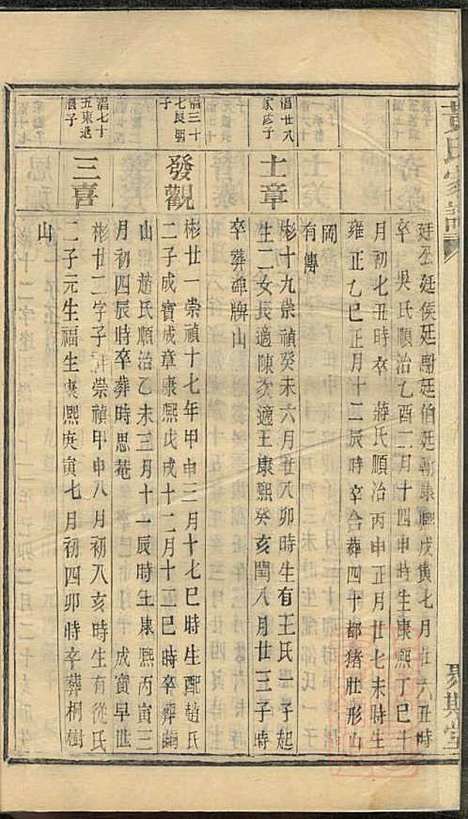 廷丞廷侯廷謝廷伯廷朝康熙戊寅七月廿六丑時
卒 吳氏順治乙酉二月十四申時生康熙丁巳十
月初七丑時卒 蔣氏順治丙申正月廿七未時生
雍正乙巳正月十二辰時卒合葬四十都猪肚形山
岡
有傳
昌廿八
士章
彬十九崇禎癸未六月廿八卯時生有王氏一子起
生二女長適陳次適王康熙癸亥閏八月廿三子時
卒葬碑牌山
昌三十
七良朝
發觀
彬廿一崇禎十七年甲申三月十七巳時生配趙氏
二子成寳成章康熙戊戌十二月十一巳時卒葬
山 趙氏順治乙未三月十一辰時生康熙丙寅三
月初四辰時卒葬時思菴 成寳早世
昌七十
五東
三喜
彬廿二字子 崇禎甲申八月初八亥時生有從氏
二子元生福生康熙庚寅七月初四卯時卒葬桐樹
山
黃氏宗譜